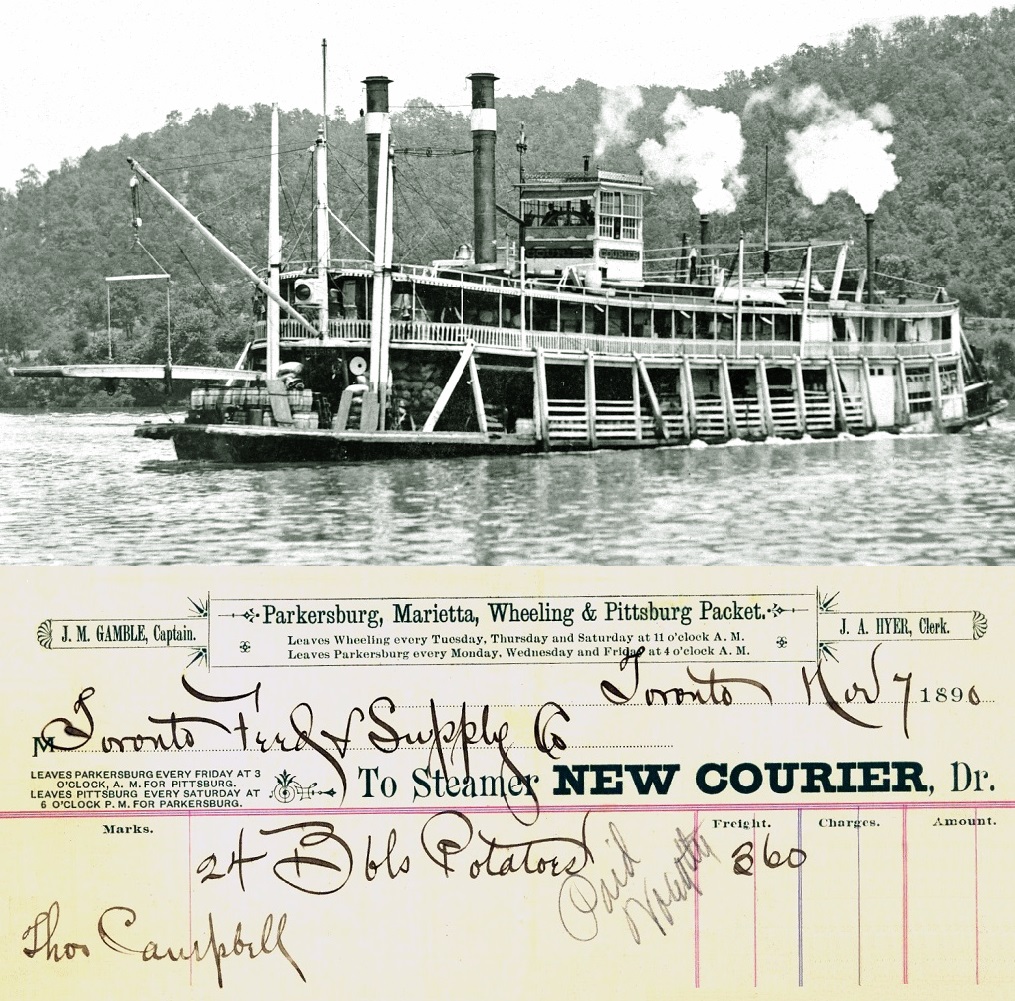 COURIER
Parkersburg, Marietta, Wheeling & Pittsburg Packet.
J. M. GAMBLE, Captain.
Leaves Wheeling every Tuesday, Thursday and Saturday at 11 o'clock A. M.
Leaves Parkersburg every Monday, Wednesday and Friday at 4 o'clock A. M.
J. A. HYER, Clerk.
Toronto Nov 7 1890
M Toronto Feed & Supply Co
LEAVES PARKERSBURG EVERY FRIDAY AT 3
O'CLOCK, A. M. FOR PITTSBURG.
LEAVES PITTSBURG EVERY SATURDAY AT
6 O'CLOCK P. M. FOR PARKERSBURG.
To Steamer NEW COURIER, Dr.
Marks. Freight. Charges. Amount.
24 Bbls Potatoes 360
Paid
Thos Campbell